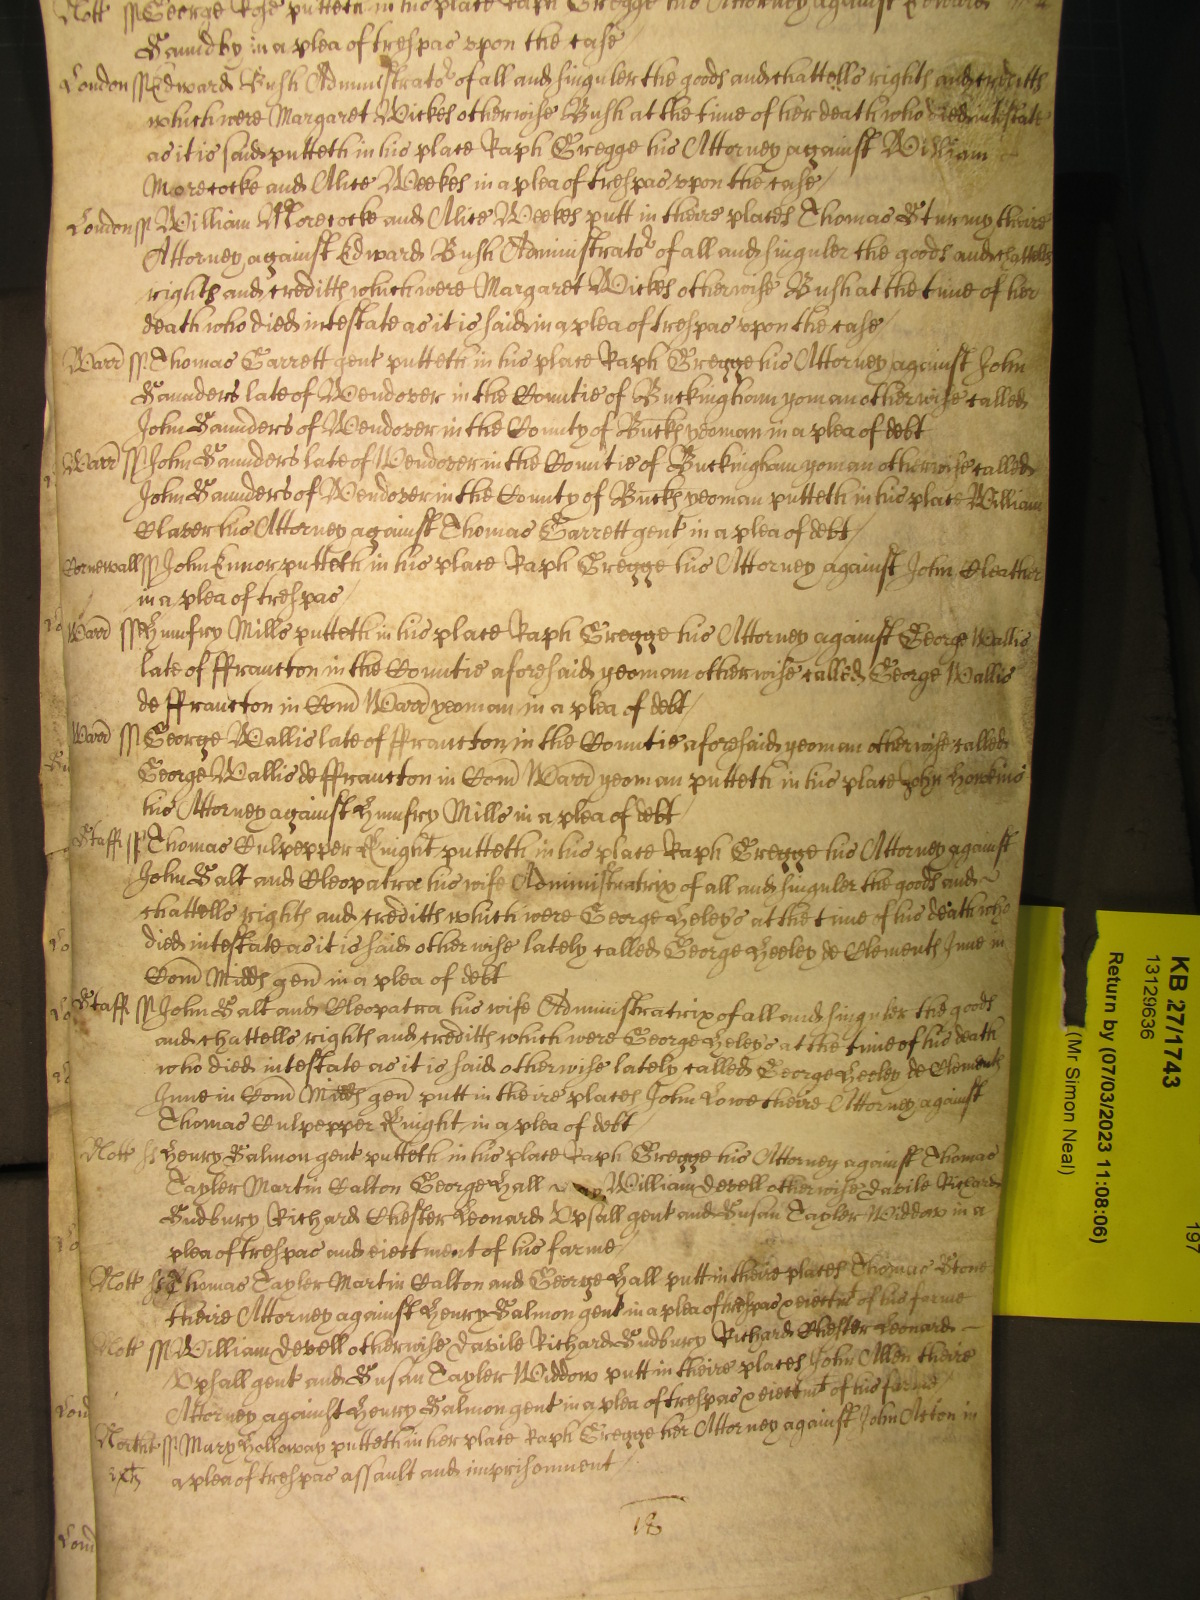 Nott ss George Rose putteth in his place Raph Gregge his Attorney against Edward
Saundby in a plea of trespas vpon the case
London ss Edward Bush Administrator of all and singuler the goods and chattells rights and creditts
which were Margaret Wickes otherwise Bush at the time of her death who died intestate
as it is said putteth in his place Raph Gregge his Attorney against William
Morecocke and Alice Weekes in a plea of trespas vpon the case
London ss William Morecocke and Alice Weekes putt in theire places Thomas Sturmy theire
Attorney against Edward Bush Administrator of all and singuler the goods and chattells
rights and creditts which were Margaret Wickes otherwise Bush at the time of her
death who died intestate as it is said in a plea of trespas vpon the case
Warr ss Thomas Garrett gent putteth in his place Raph Gregge his Attorney against John
Saunders late of Wendover in the Countie of Buckingham yoman otherwise called
John Saunders of Wendover in the County of Bucks yeoman in a plea of debt
Warr ss John Saunders late of Wendover in the Countie of Buckingham yoman otherwise called
John Saunders of Wendover in the County of Bucks yeoman putteth in his place William
Claver his Attorney against Thomas Garrett gent in a plea of debt
Cornewall ss John Ennor putteth in his place Raph Gregge his Attorney against John Cleather
in a plea of trespas
Warr ss Humfry Mills putteth in his place Raph Gregge his Attorney against George Wallis
late of ffrancton in the Countie aforesaid yeoman otherwise called George Wallis
de ffrancton in Com Warr yeoman in a plea of debt
Warr ss George Wallis late of ffrancton in the Countie aforesaid yeoman otherwise called
George Wallis de ffrancton in Com Warr yeoman putteth in his place John Howkins
his Attorney against Humfry Mills in a plea of debt
Staff ss Thomas Culpepper Knight putteth in his place Raph Gregge his Attorney against
John Salt and Cleopatra his wife Administratrix of all and singuler the goods and
chattells rights and creditts which were George Heleys at the time of his death who
died intestate as it is said otherwise lately called George Heeley de Clements Inne in
Com Midds gen in a plea of debt
Staff ss John Salt and Cleopatra his wife Administratrix of all and singuler the goods
and chattells rights and creditts which were George Heleys at the time of his death
who died intestate as it is said otherwise lately called George Heeley de Clements
Inne in Com Midds gen putt in theire places John Lowe theire Attorney against
Thomas Culpepper Knight in a plea of debt
Nott ss Henry Salmon gent putteth in his place Raph Gregge his Attorney against Thomas
Tayler Martin Calton George Hall William Devell otherwise Davile Richard
Sudbury Richard Chester Leonard Vpsall gent and Susan Tayler Widdow in a
plea of trespas and eiectment of his farme
Nott ss Thomas Tayler Martin Calton and George Hall putt in theire places Thomas Stone
theire Attorney against Henry Salmon gent in a plea of trespas & eiectmt of his farme
Nott ss William Devell otherwise Davile Richard Sudbury Richard Chester Leonard
Vpsall gent and Susan Tayler Widdow putt in theire places John Allen theire
Attorney against Henry Salmon gent in a plea of trespas & eiectmt of his farme
Northt ss Mary Holloway putteth in her place Raph Gregge her Attorney against John Acton in
a plea of trespas assault and imprisonment
18
KB 27/1743
13129636
Return by (07/03/2023 11:08:06)
(Mr Simon Neal)
197